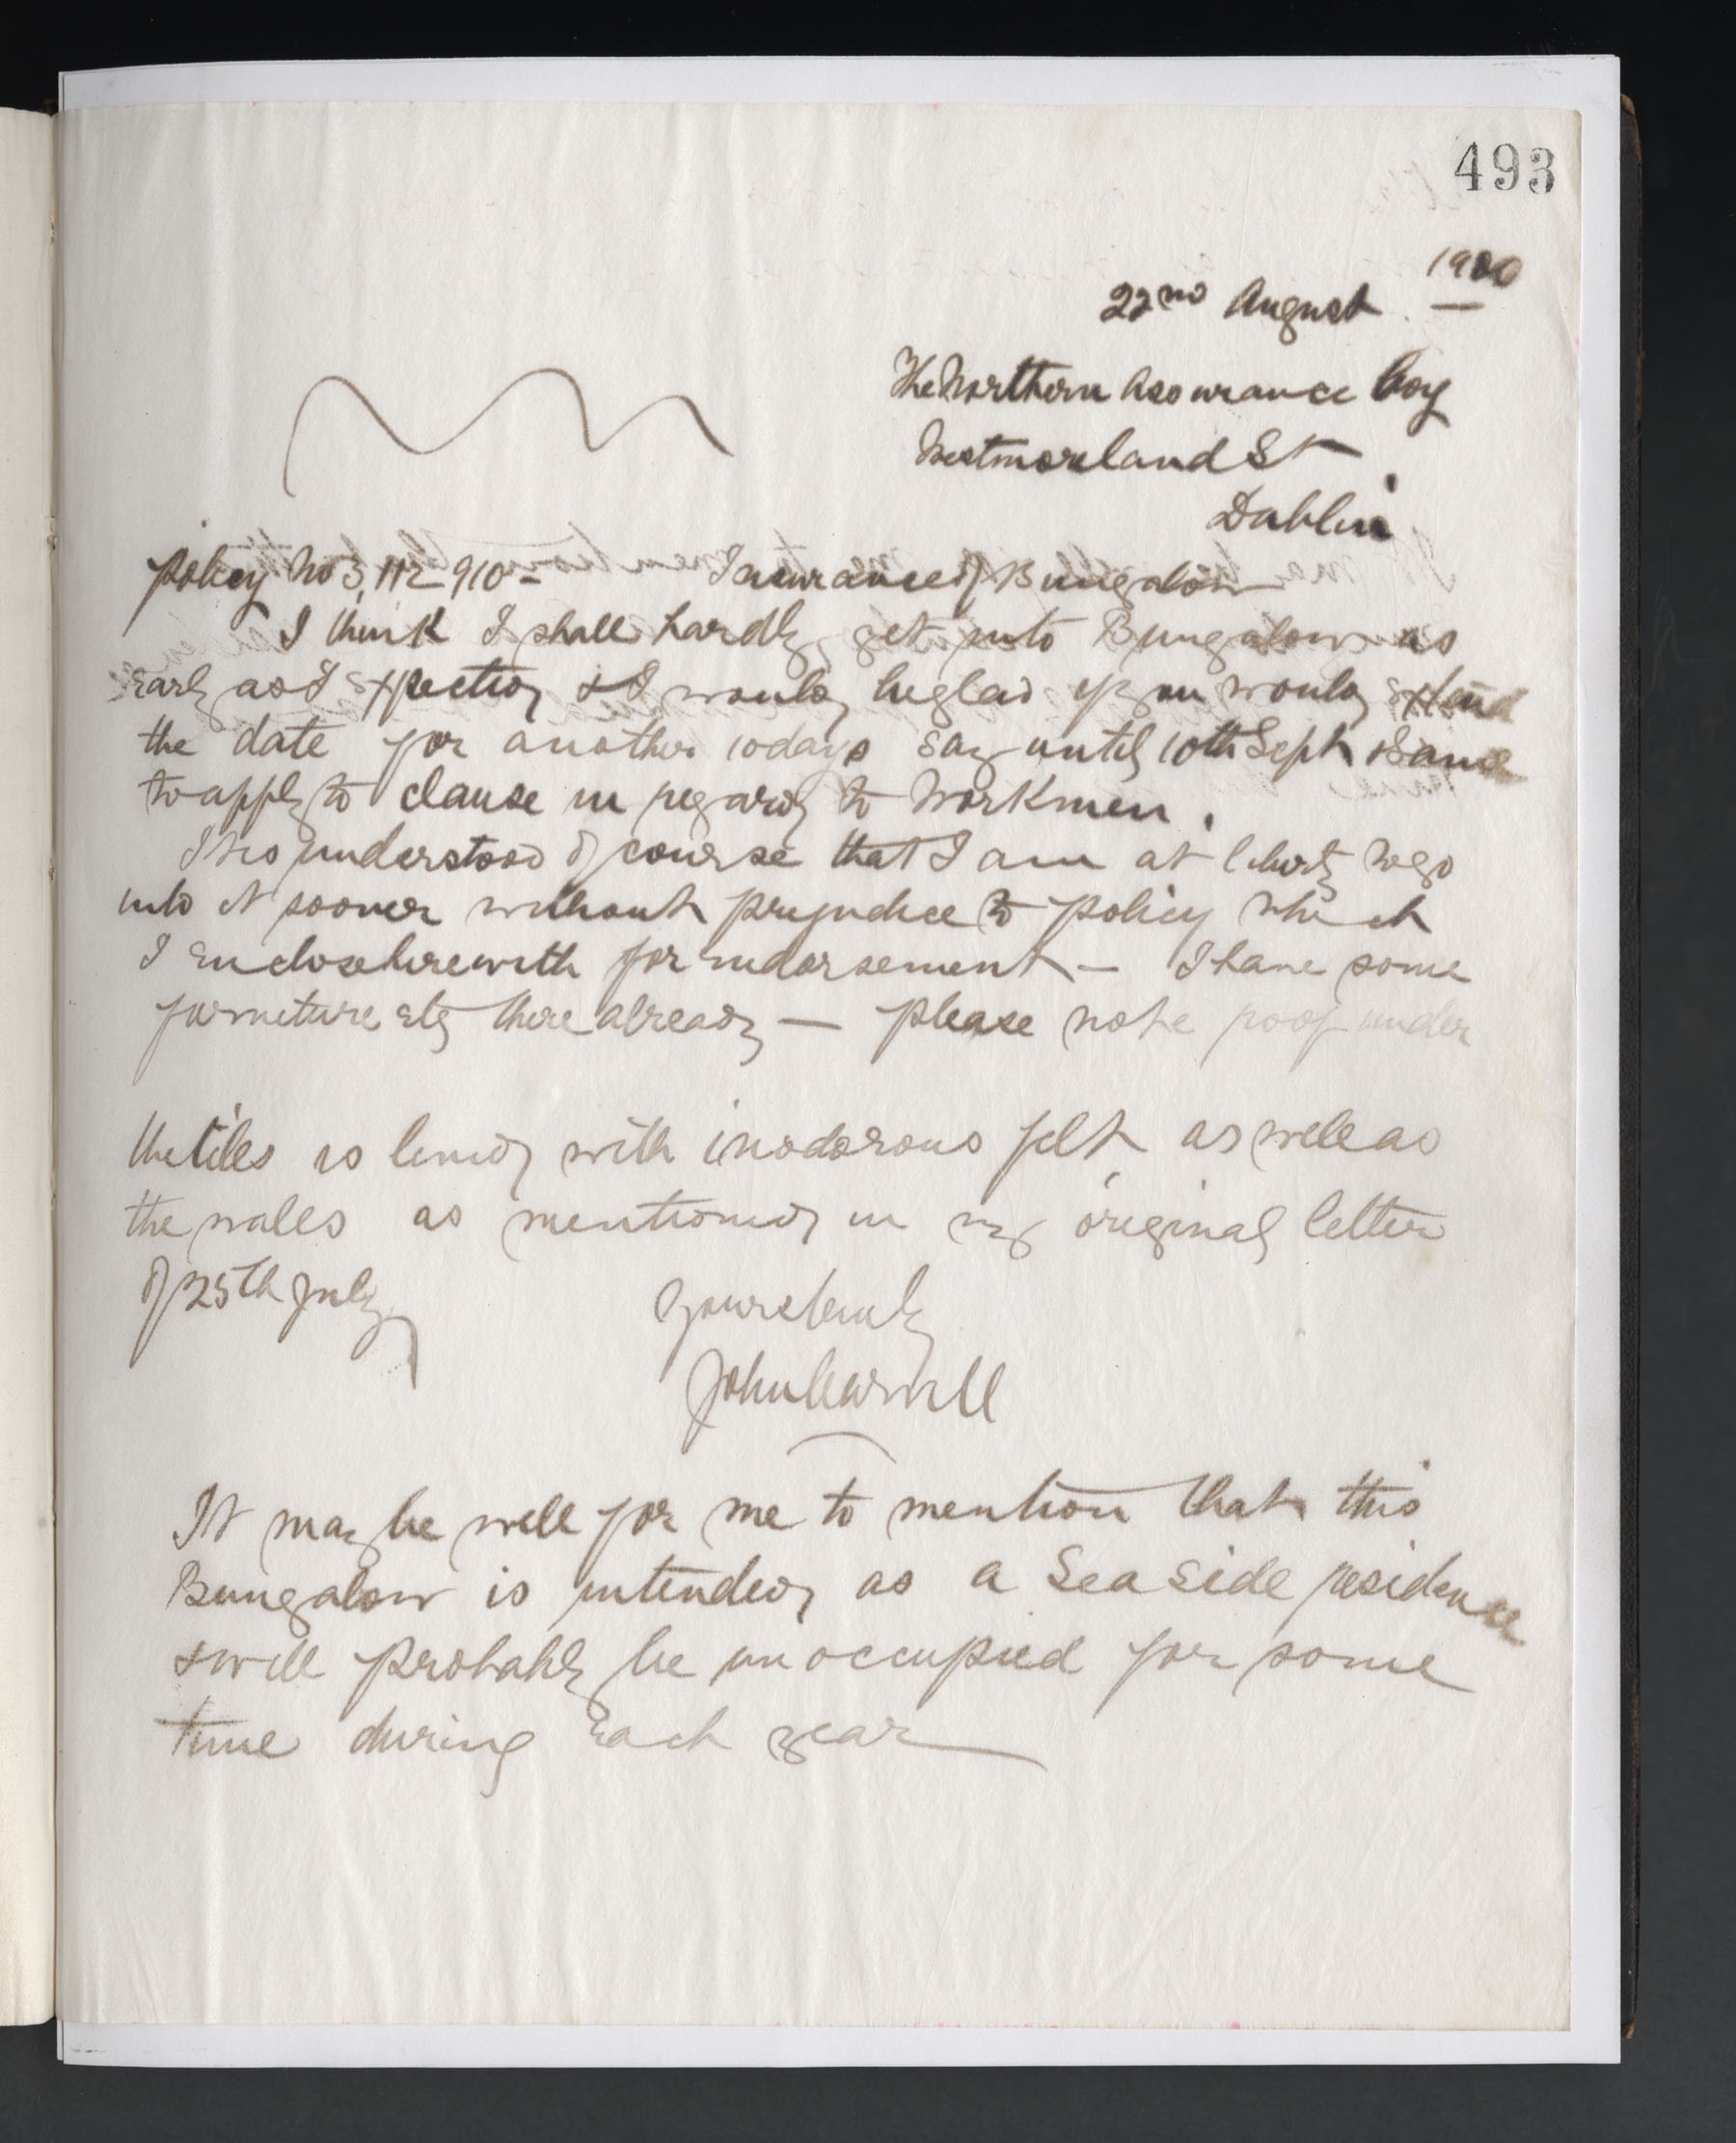 493
22nd August 1900
The Northern Assurance Coy
Westmoreland St
Dublin
Policy No 3,112 910 - Insurance of Bungalow
I think I shall hardly get into Bungalow as
early as I expected & I would be glad if you would extend
the date for another 10 days say until 10th Sept & same
to apply to clause in regard to Workmen.
It is understood of course that I am at liberty to go
into it sooner without prejudice to policy which
I enclose herewith for endorsement - I have some
furniture etc there already - please note roof under
the tiles is lined with inodorous felt as well as
the walls as mentioned in my original letter
of 25th July
Yours truly
John
It may be well for me to mention that this
Bungalow is intended as a Sea Side residence
& will probably be unoccupied for some
time during each year